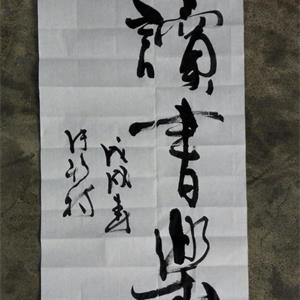 讀書樂
戊戌春